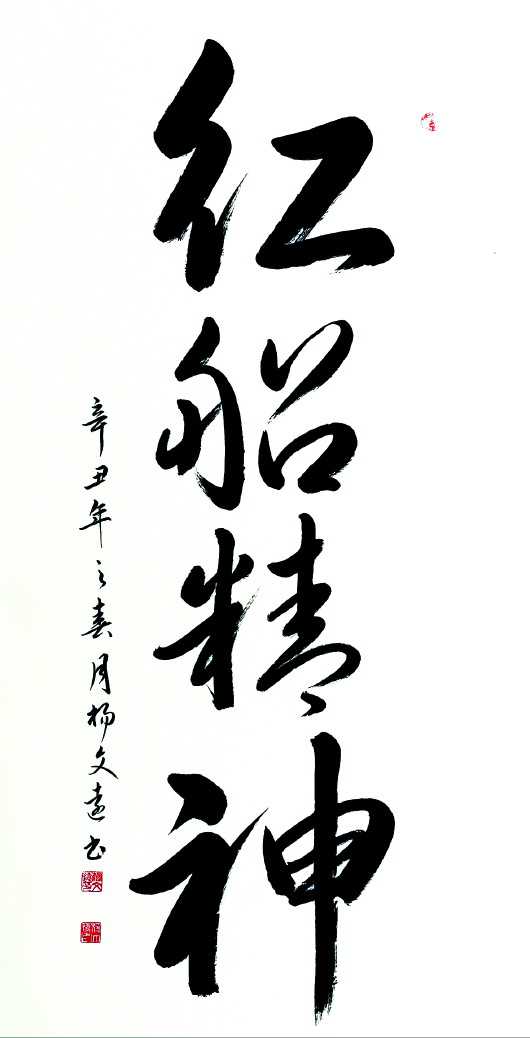 红船精神
辛丑年之春月杨文远书